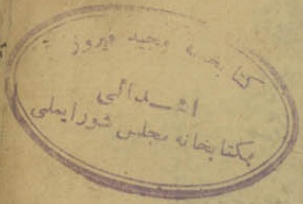 کتابخانه وحید فیروز
اهدائی
بکتابخانه مجلس شورایملی